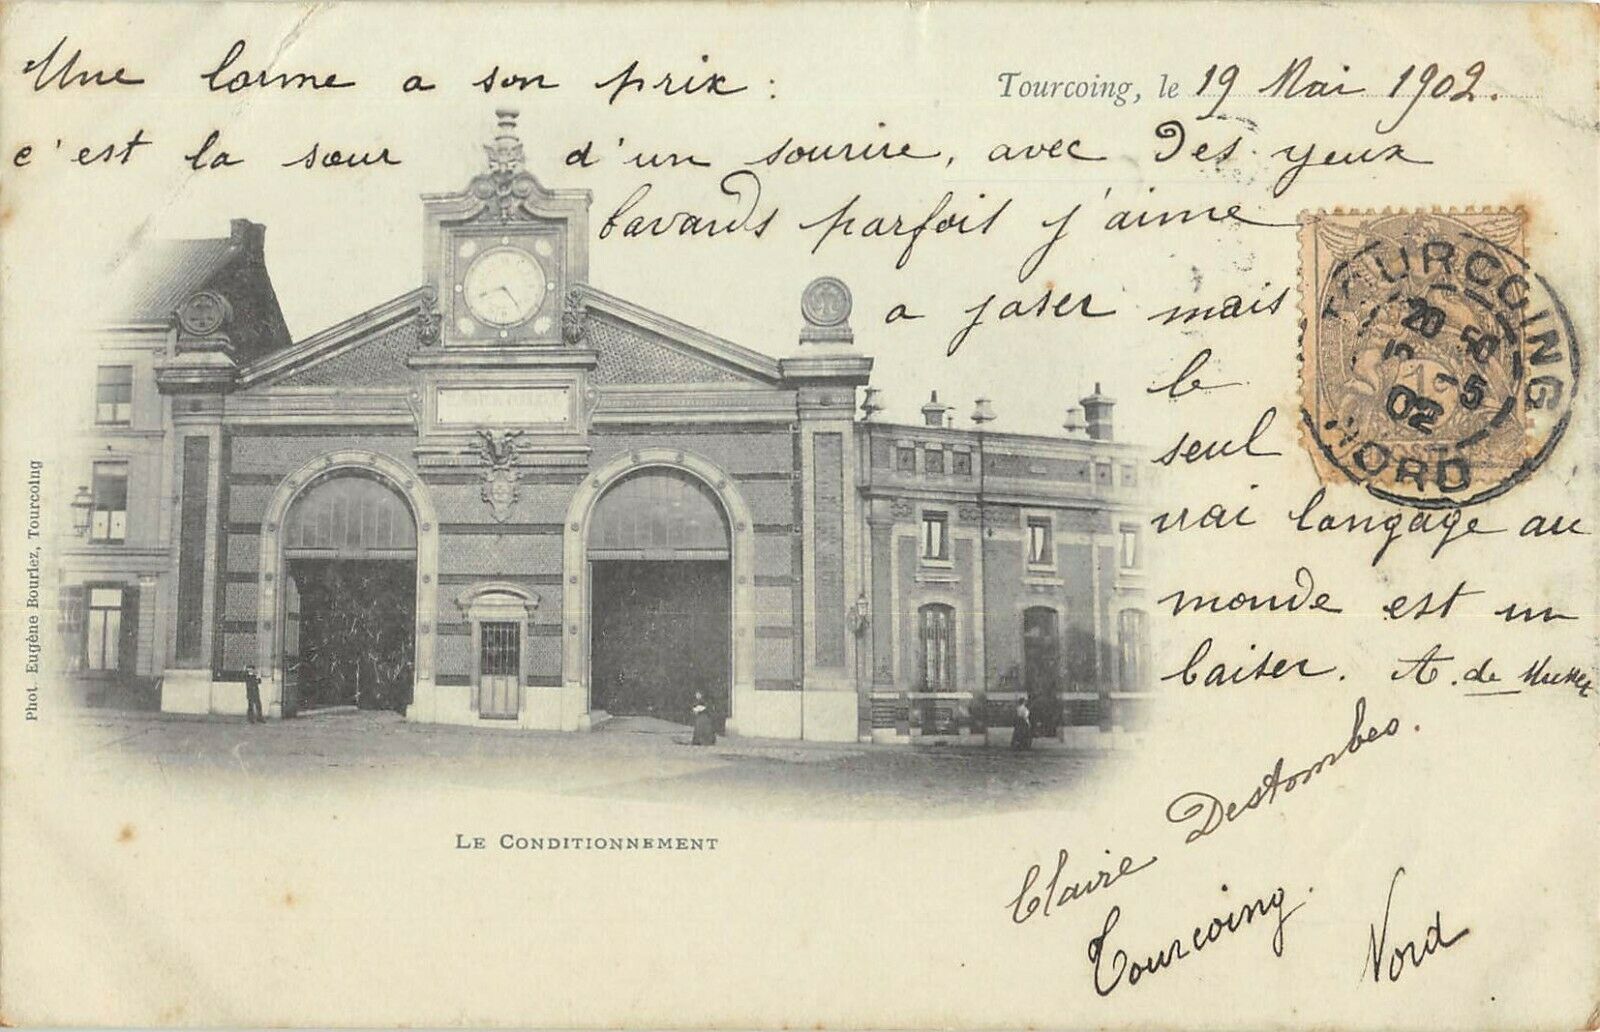 Une larme a son prix :
Tourcoing, le 19 Mai 1902.
c'est la sœur d'un sourire, avec des yeux
bavards parfois j'aime
a jaser mais
le
seul
vrai langage au
monde est un
baiser. A. de Musset
TOURCOING
20
5
02
NORD
Phot. Eugène Bouriez, Tourcoing
LE CONDITIONNEMENT
Claire Destombes.
Tourcoing.
Nord